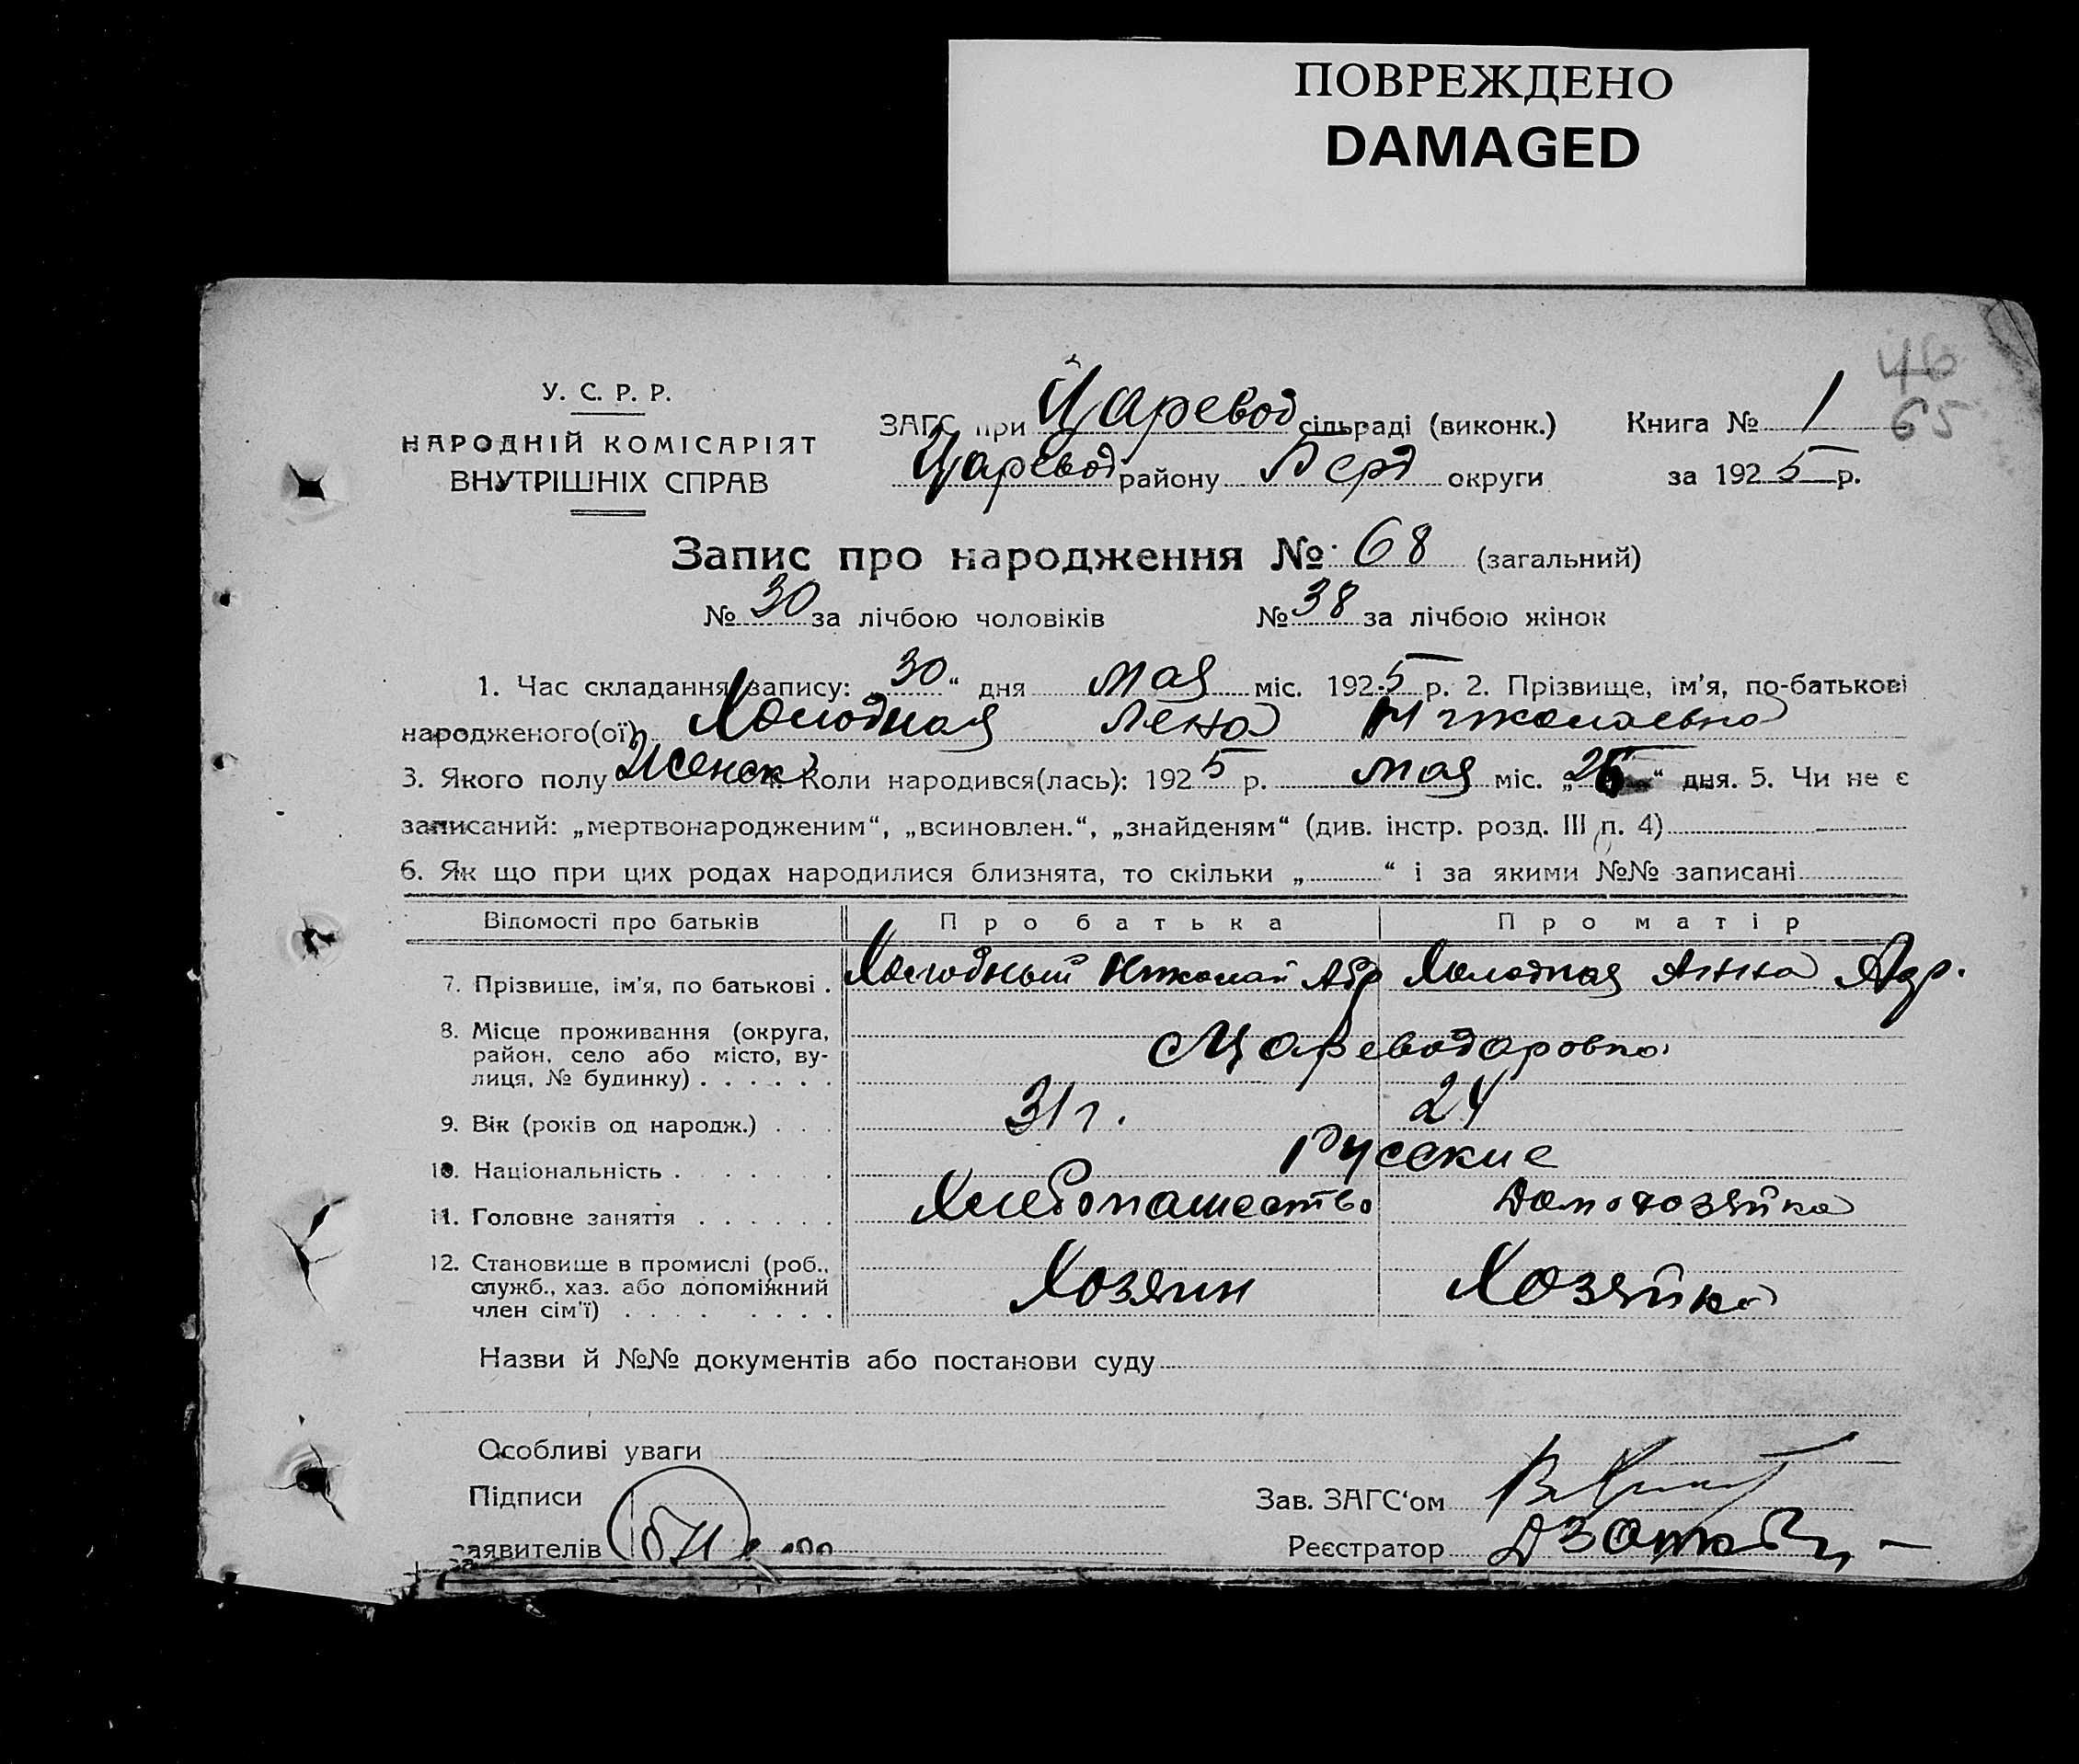 ПОВРЕЖДЕНО
DAMAGED
46
65
У. С. Р. Р.
НАРОДНІЙ КОМІСАРІЯТ
ВНУТРІШНІХ СПРАВ
ЗАГС при Царевод сільраді (виконк.) Книга № 1
Царевод району округи за 1925 р.
Запис про народження № 68 (загальний)
№ 30 за лічбою чоловіків № 38 за лічбою жінок
1. Час складання запису: „30“ дня мая міс. 1925 р. 2. Прізвище, ім'я, по-батькові
народженого(ої) Холодная Лена Николаевна
3. Якого полу Женск. Коли народився(лась): 1925 р. мая міс. „ “ дня. 5. Чи не є
записаний: „мертвонародженим“, „всиновлен.“, „знайденям“ (див. інстр. розд. III п. 4)
6. Як що при цих родах народилися близнята, то скільки „ “ і за якими №№ записані
Відомості про батьків Про батька Про матір
7. Прізвище, ім'я, по батькові . Холодный Николай Абр Холодная Анна Адр.
8. Місце проживання (округа,
район, село або місто, ву-
лиця, № будинку) . . . . . . Цареводаровка
9. Вік (років од народж.) . . . 31 г. 24
10. Національність . . . . . . . Русские
11. Головне заняття . . . . . . Хлебопашество Домохозяйка
12. Становище в промислі (роб.,
служб., хаз. або допоміжний
член сім'ї) . . . . . . . . Хозяин Хозяйка
Назви й №№ документів або постанови суду
Особливі уваги
Підписи Зав. ЗАГС'ом
заявителів Реєстратор